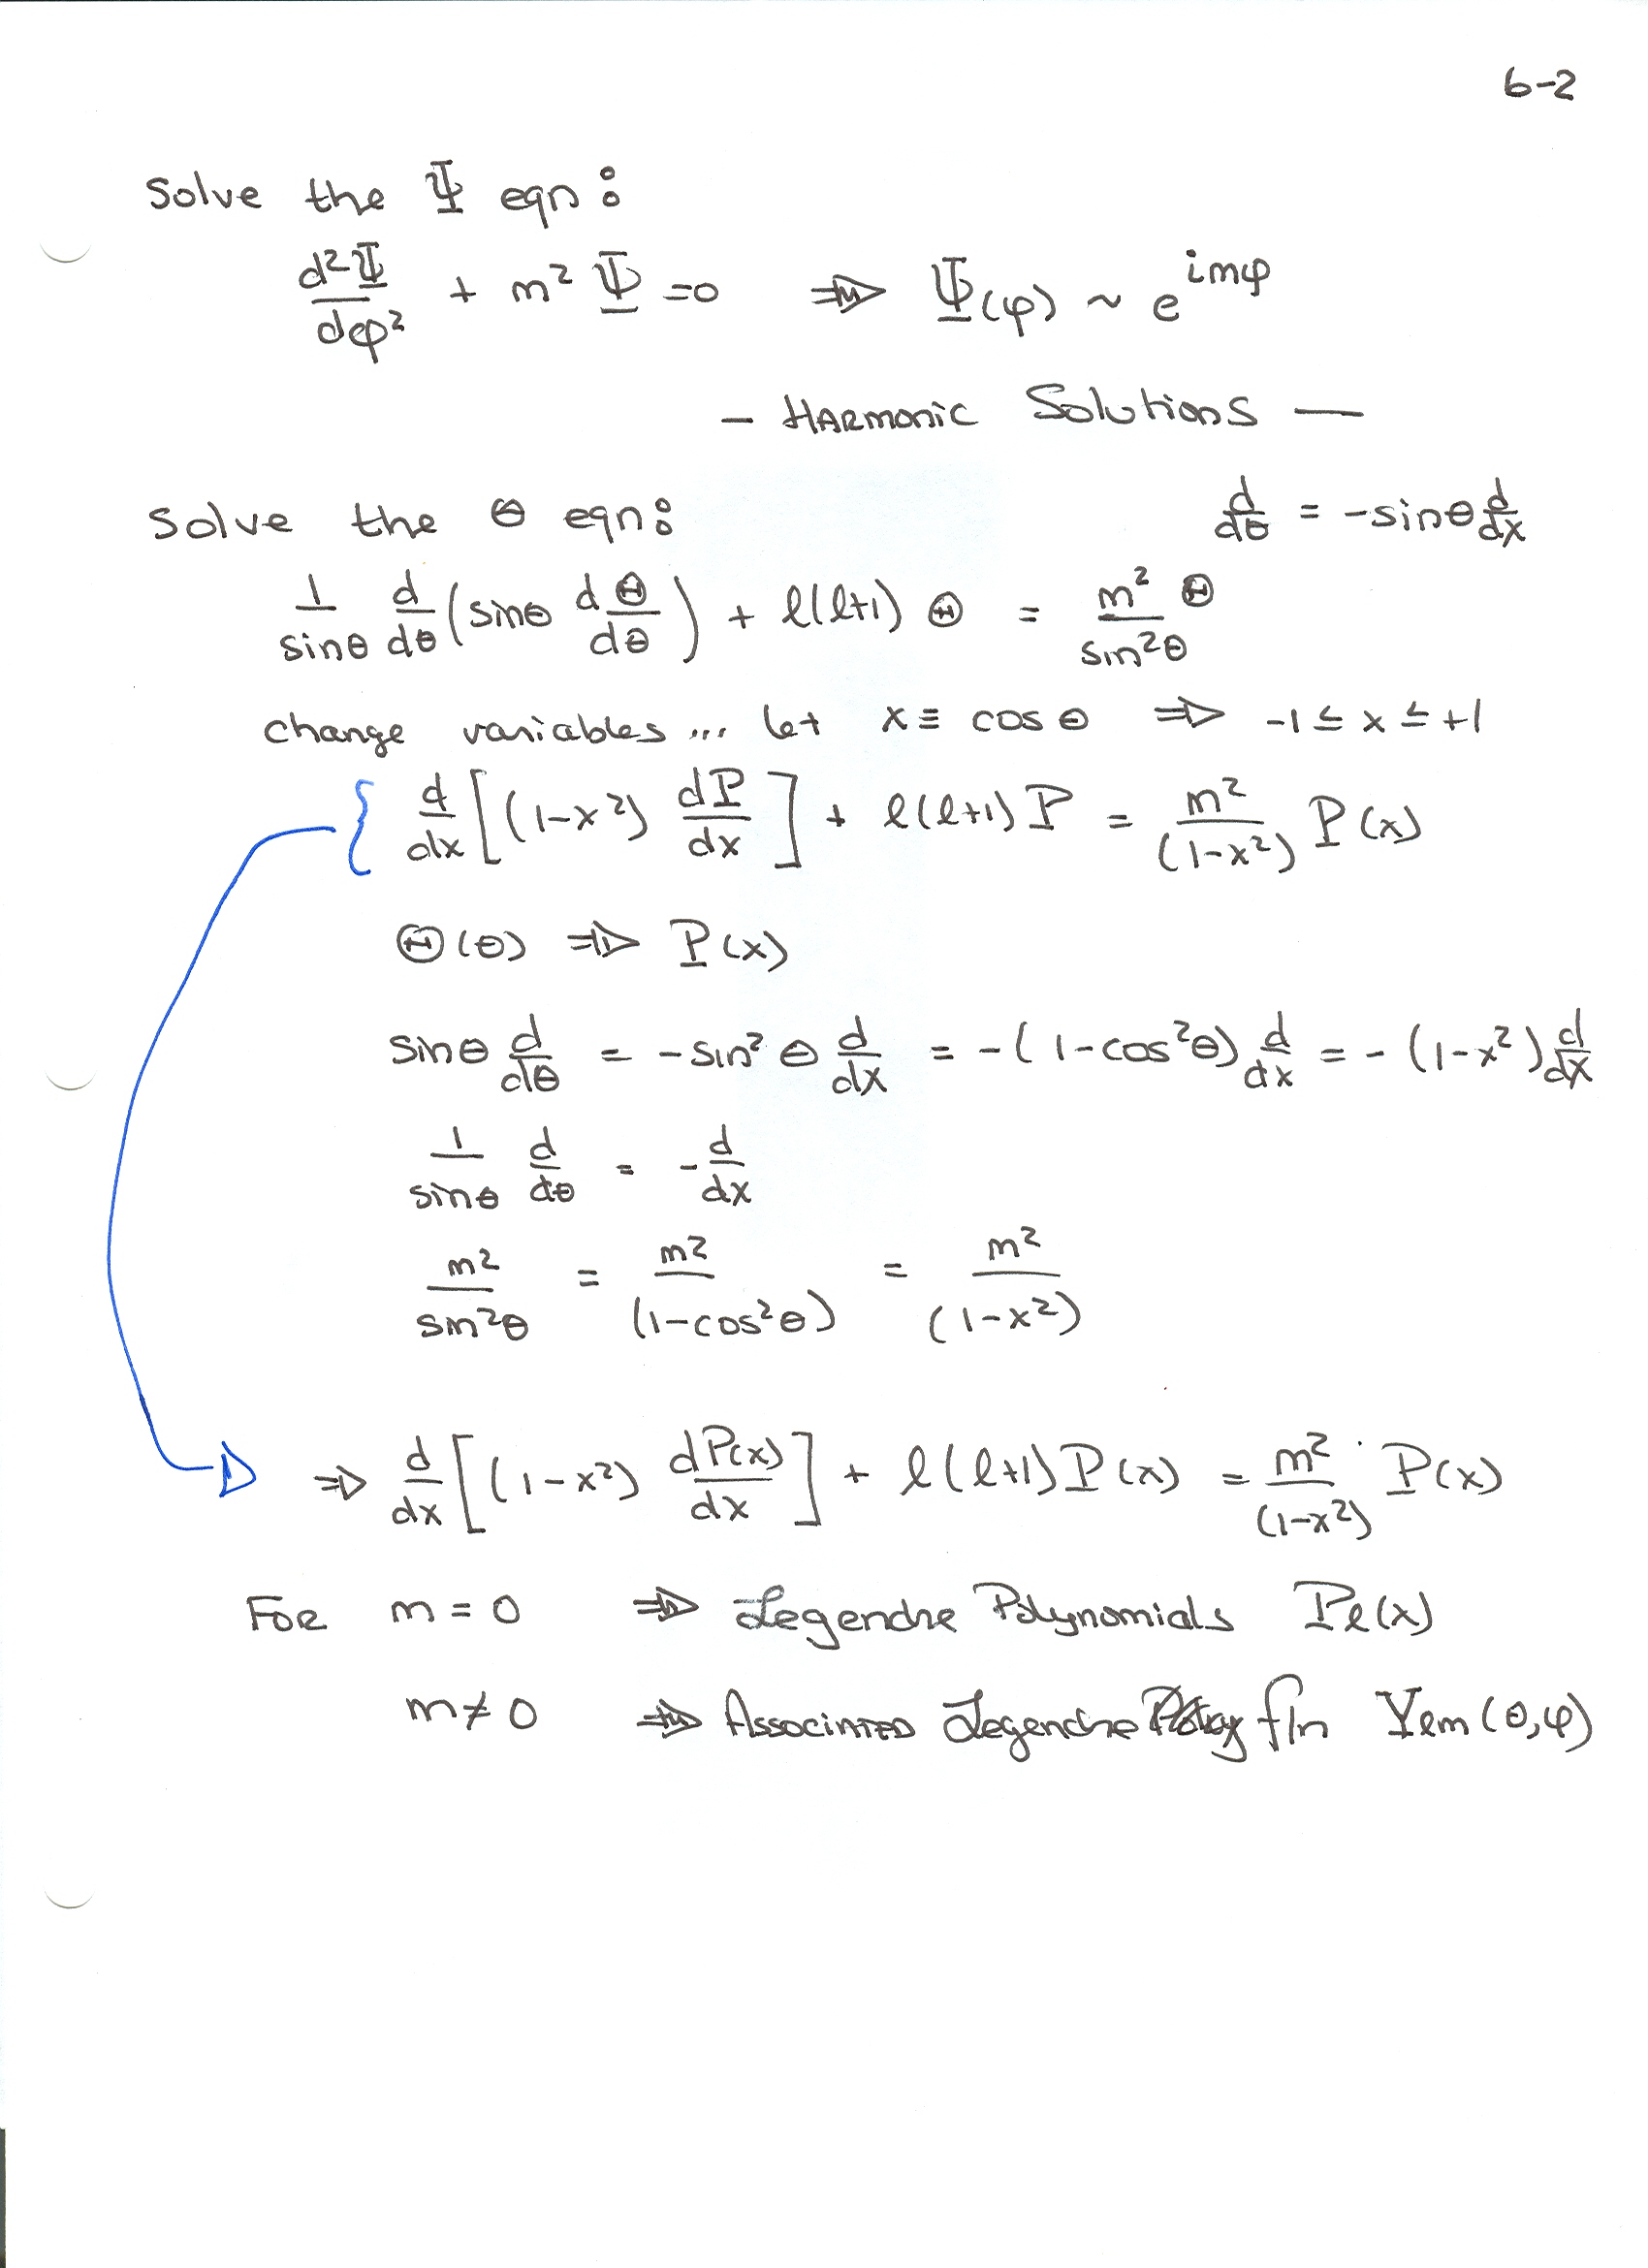 6-2
Solve the Ψ eqn:
d²Ψ/dφ² + m² Ψ = 0 ⇒ Ψ(φ) ~ e^{imφ}
- HARMONIC Solutions -
Solve the Θ eqn: d/dθ = -sinθ d/dx
1/sinθ d/dθ (sinθ dΘ/dθ) + ℓ(ℓ+1) Θ = m²/sin²θ Θ
change variables... let x ≡ cos θ ⇒ -1 ≤ x ≤ +1
{ d/dx [(1-x²) dP/dx] + ℓ(ℓ+1) P = m²/(1-x²) P(x)
Θ(θ) ⇒ P(x)
sinθ d/dθ = -sin²θ d/dx = -(1-cos²θ) d/dx = -(1-x²) d/dx
1/sinθ d/dθ = -d/dx
m²/sin²θ = m²/(1-cos²θ) = m²/(1-x²)
⇒ d/dx [(1-x²) dP(x)/dx] + ℓ(ℓ+1) P(x) = m²/(1-x²) P(x)
FOR m = 0 ⇒ Legendre Polynomials Pℓ(x)
m ≠ 0 ⇒ ASSOCIATED Legendre fn Yℓm(θ,φ)